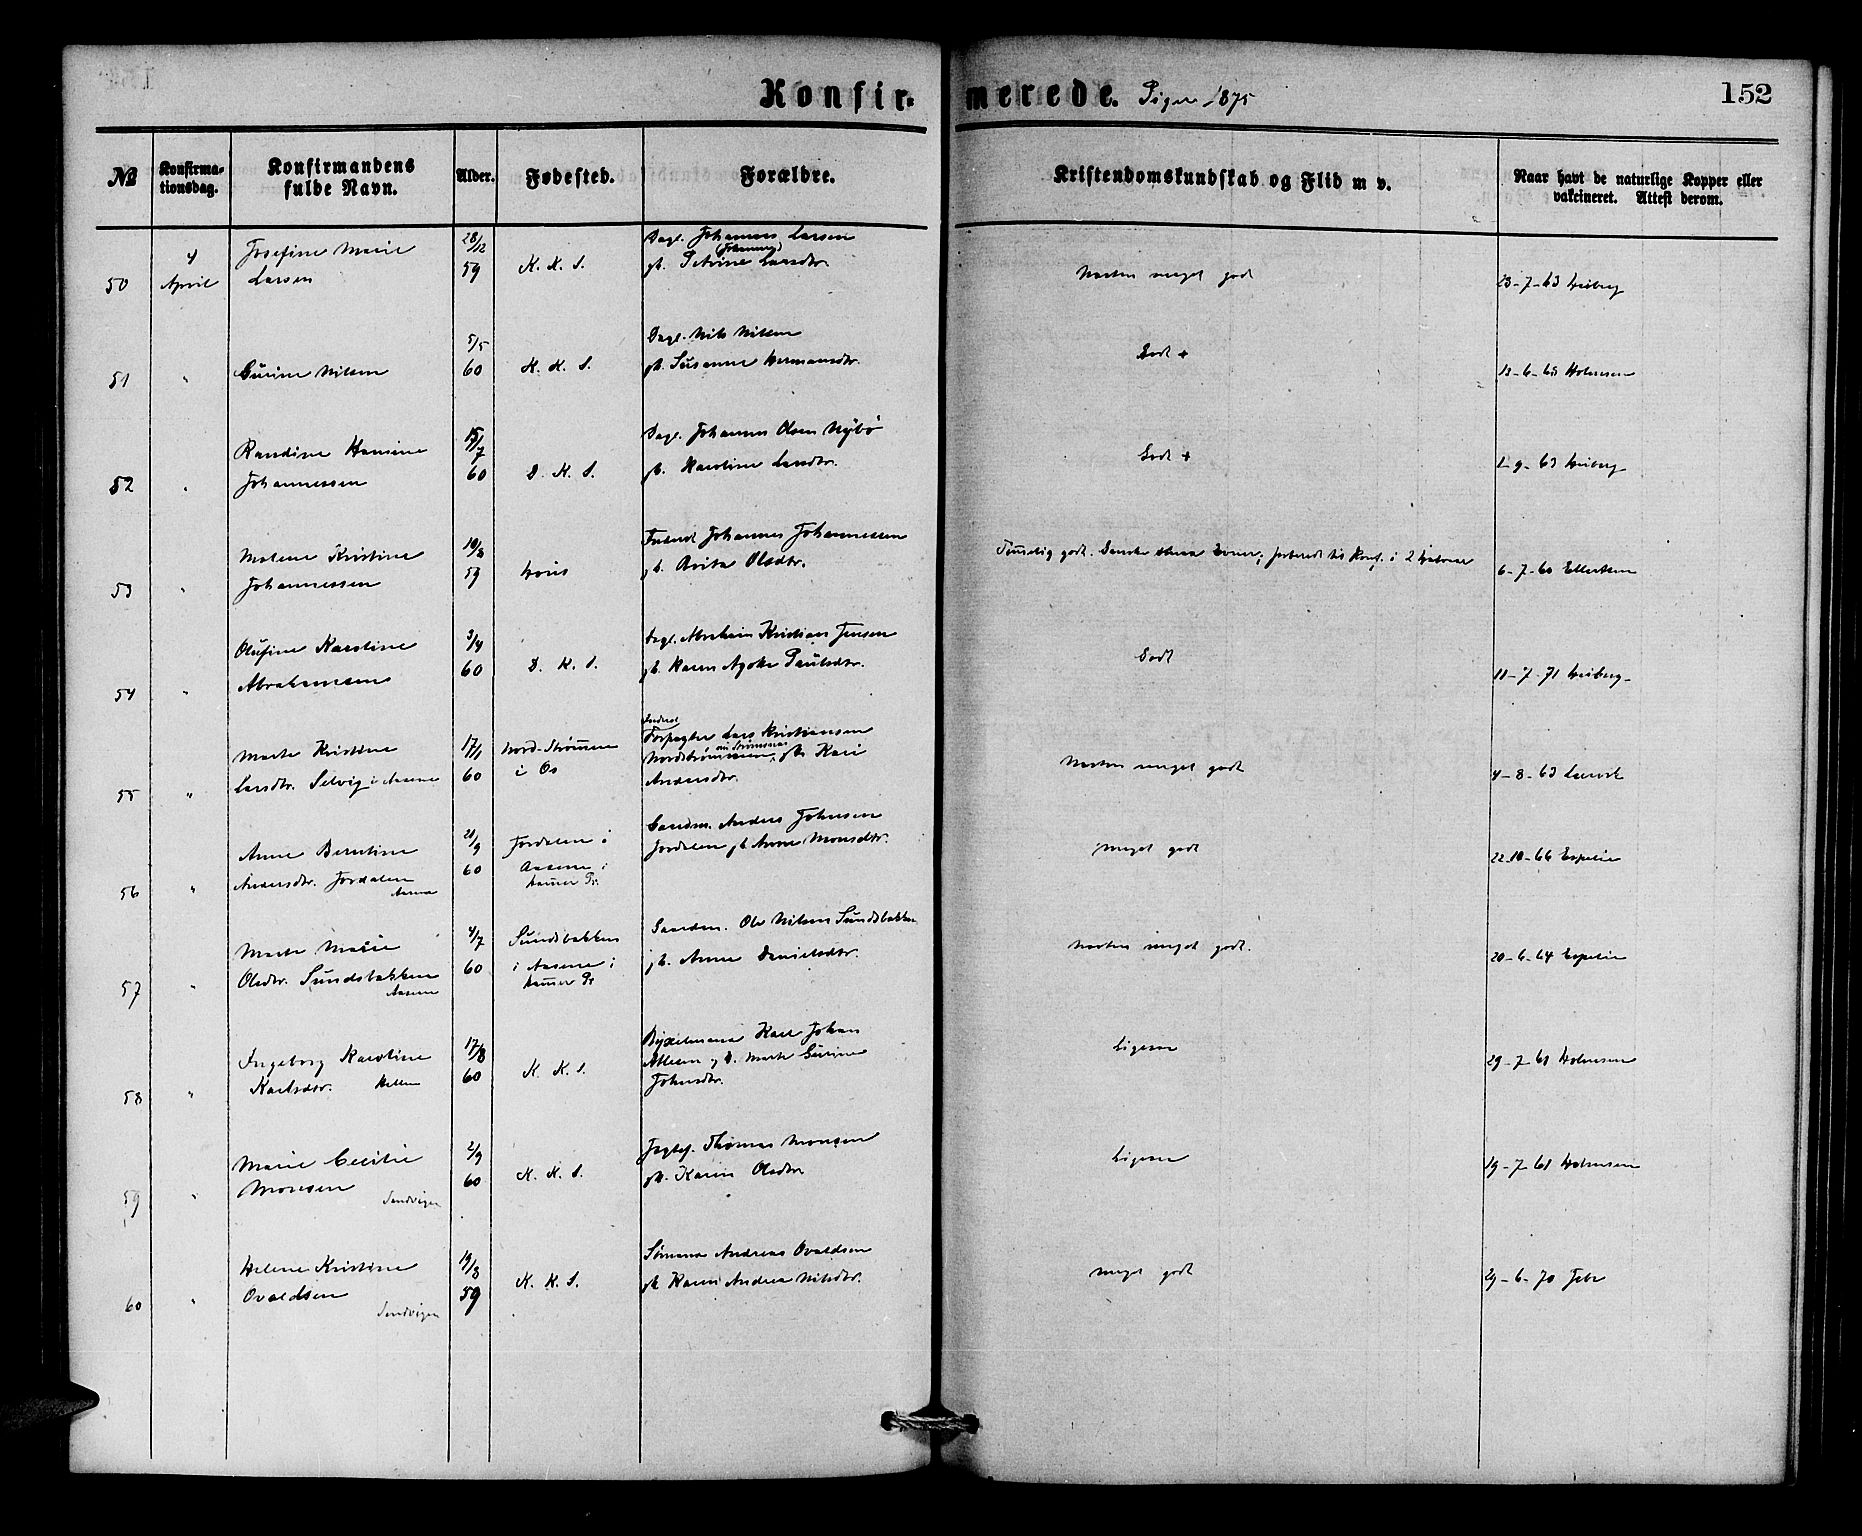 Konfirmerede. Piger 1875
152
№ Konfirmationsdag. Konfirmandens fulde Navn. Alder. Fødested. Forældre. Kristendomskundskab og Flid m v. Naar havt de naturlige Kopper eller vakcineret. Attest derom.
50 4 April Josefine Marie Larsen 28/12 59 K. K. S. Dagl. Johannes Larsen (Johannes) gb. Larsdtr. Næsten meget godt 23-7-63 Heiberg
51 " Gurine Nilsen 5/5 60 K. K. S. Dagl. Nils Nilsen gb. Susanne Hermansdtr. Godt + 13-6-65 Holmsen
52 " Randine Hansine Johannessen 15/7 60 D. K. S. Dagl. Johannes Olsen Nybø gb. Karoline Larsdtr. Godt + 2-9-63 Heiberg
53 " Malene Kristine Johannessen 10/8 59 Johannes Johannessen gb. Olsdtr. Temmelig godt. forberedt til Konf. i 2 6-7-60 Ellertsen
54 " Olufine Karoline Abrahamsen 3/4 60 D. K. S. Dagl. Abraham Kristian Jensen gb. Karen Paulsdtr. Godt 11-7-71 Heiberg
55 " Marte Kristine Larsdtr. Selvig i Aasene 17/1 60 Nord-Strømmen i Os Forpagter Lars Kristiansen Nordstrømmen, gb. Kari Andersdtr. Næsten meget godt 4-8-63
56 " Anne Berntine Andersdtr. Jordalen Aasene 21/9 60 Jordalen i Aasene i Hammer Pr. Gaardm. Anders Johnsen Jordalen gb. Anne Monsdtr. Meget godt 22-10-66 Espelie
57 " Marte Marie Olsdtr. Sundsbakken Aasene 4/7 60 Sundsbakken i Aasene i Hammer Pr Gaardm. Ole Nilsen Sundsbakken gb. Anne Danielsdtr. Næsten meget godt. 20-6-64 Espelie
58 " Ingeborg Karoline Karlsdtr. Hellen 17/8 60 K. K. S. Karl Johan gb. Marte Gurine Johnsdtr. Ligesaa 29-7-61 Holmsen
59 " Marie Cecilie Monsen Sandvigen 2/9 60 K. K. S. Thomas Monsen gb. Karen Olsdtr. Ligesaa 19-7-61 Holmsen
60 " Helene Kristine Ovaldsen Sandvigen 19/8 59 K. K. S. Sømand Andreas Ovaldsen gb. Karen Andrea Nilsdtr. Meget godt 29-6-70